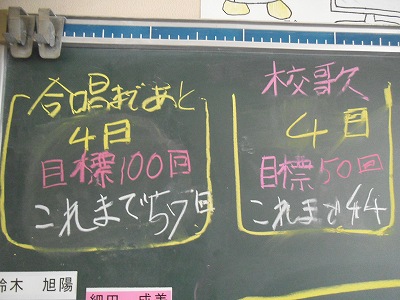 合唱まであと
4日
目標100回
これまで57回
校歌
4日
目標50回
これまで44
鈴木 旭陽
細田 成美